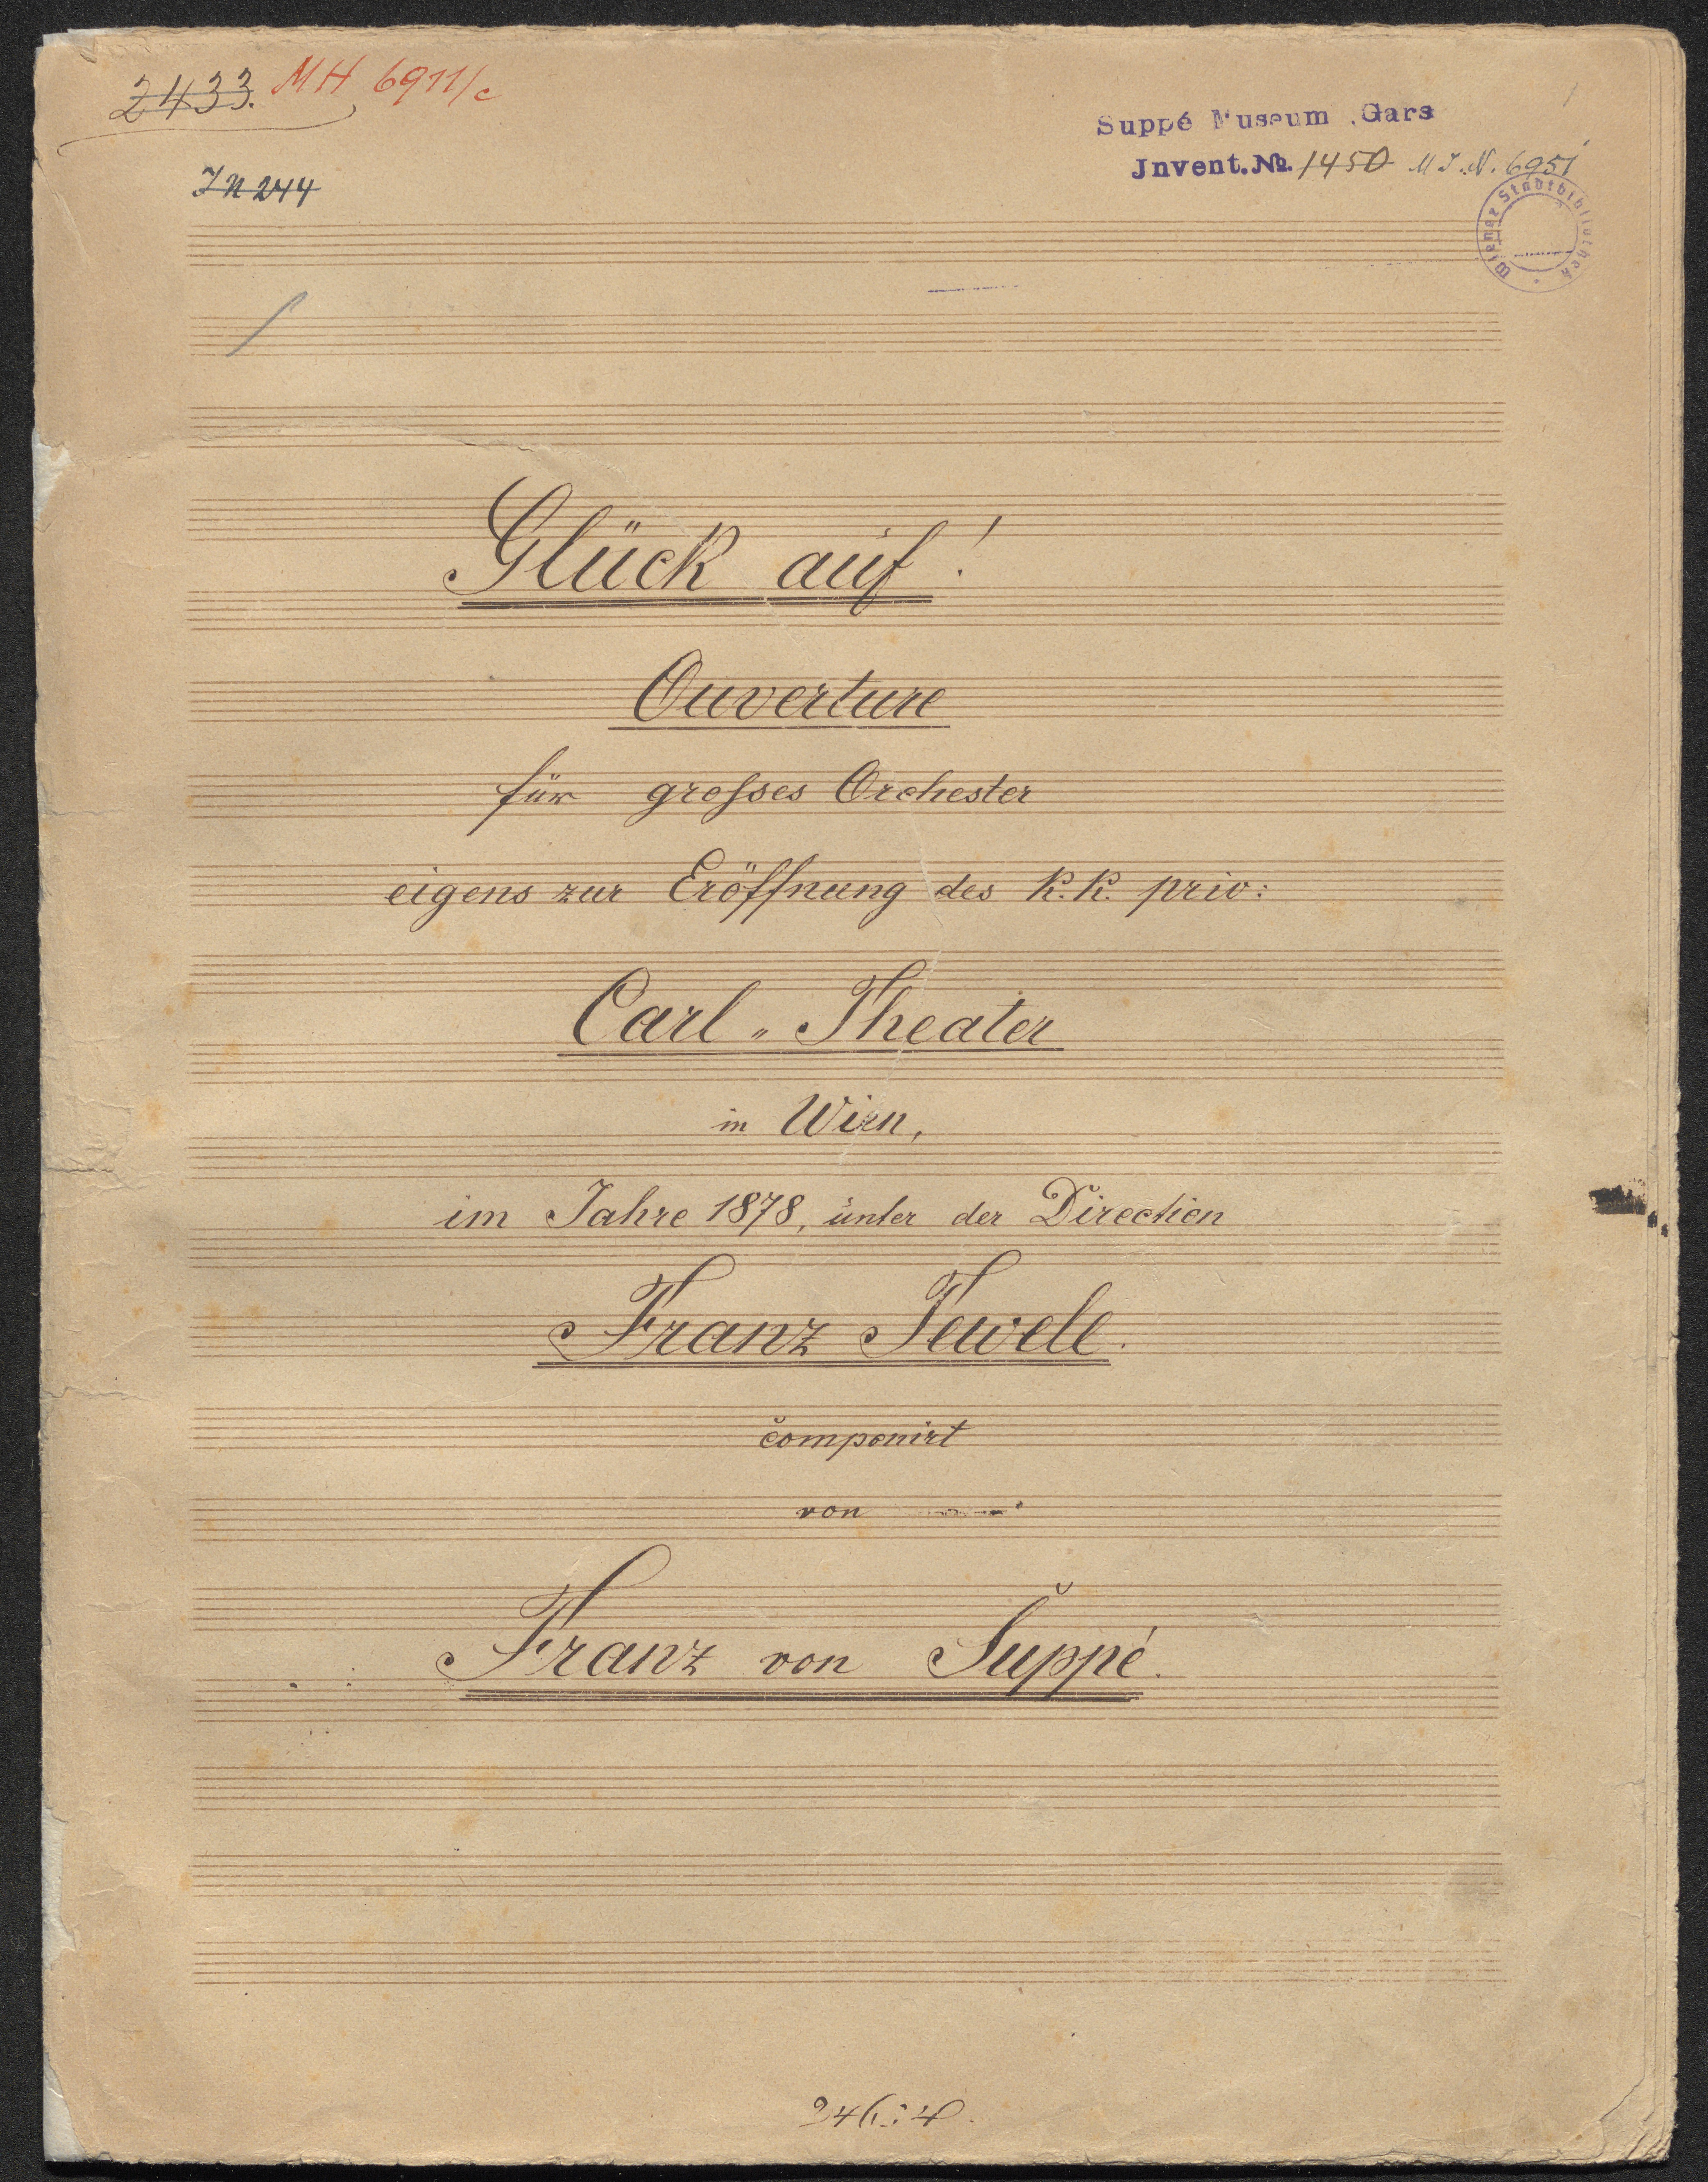 2433. MH 6911/c
Suppé Museum Gars
Jnvent.No. 1450 M J. N. 6951
J N 244
Wiener Stadtbibliothek
Glück auf!
Ouverture
für grosses Orchester
eigens zur Eröffnung des k. k. priv:
Carl-Theater
in Wien,
im Jahre 1878, unter der Direction
Franz Tewele.
componirt
von
Franz von Suppé.